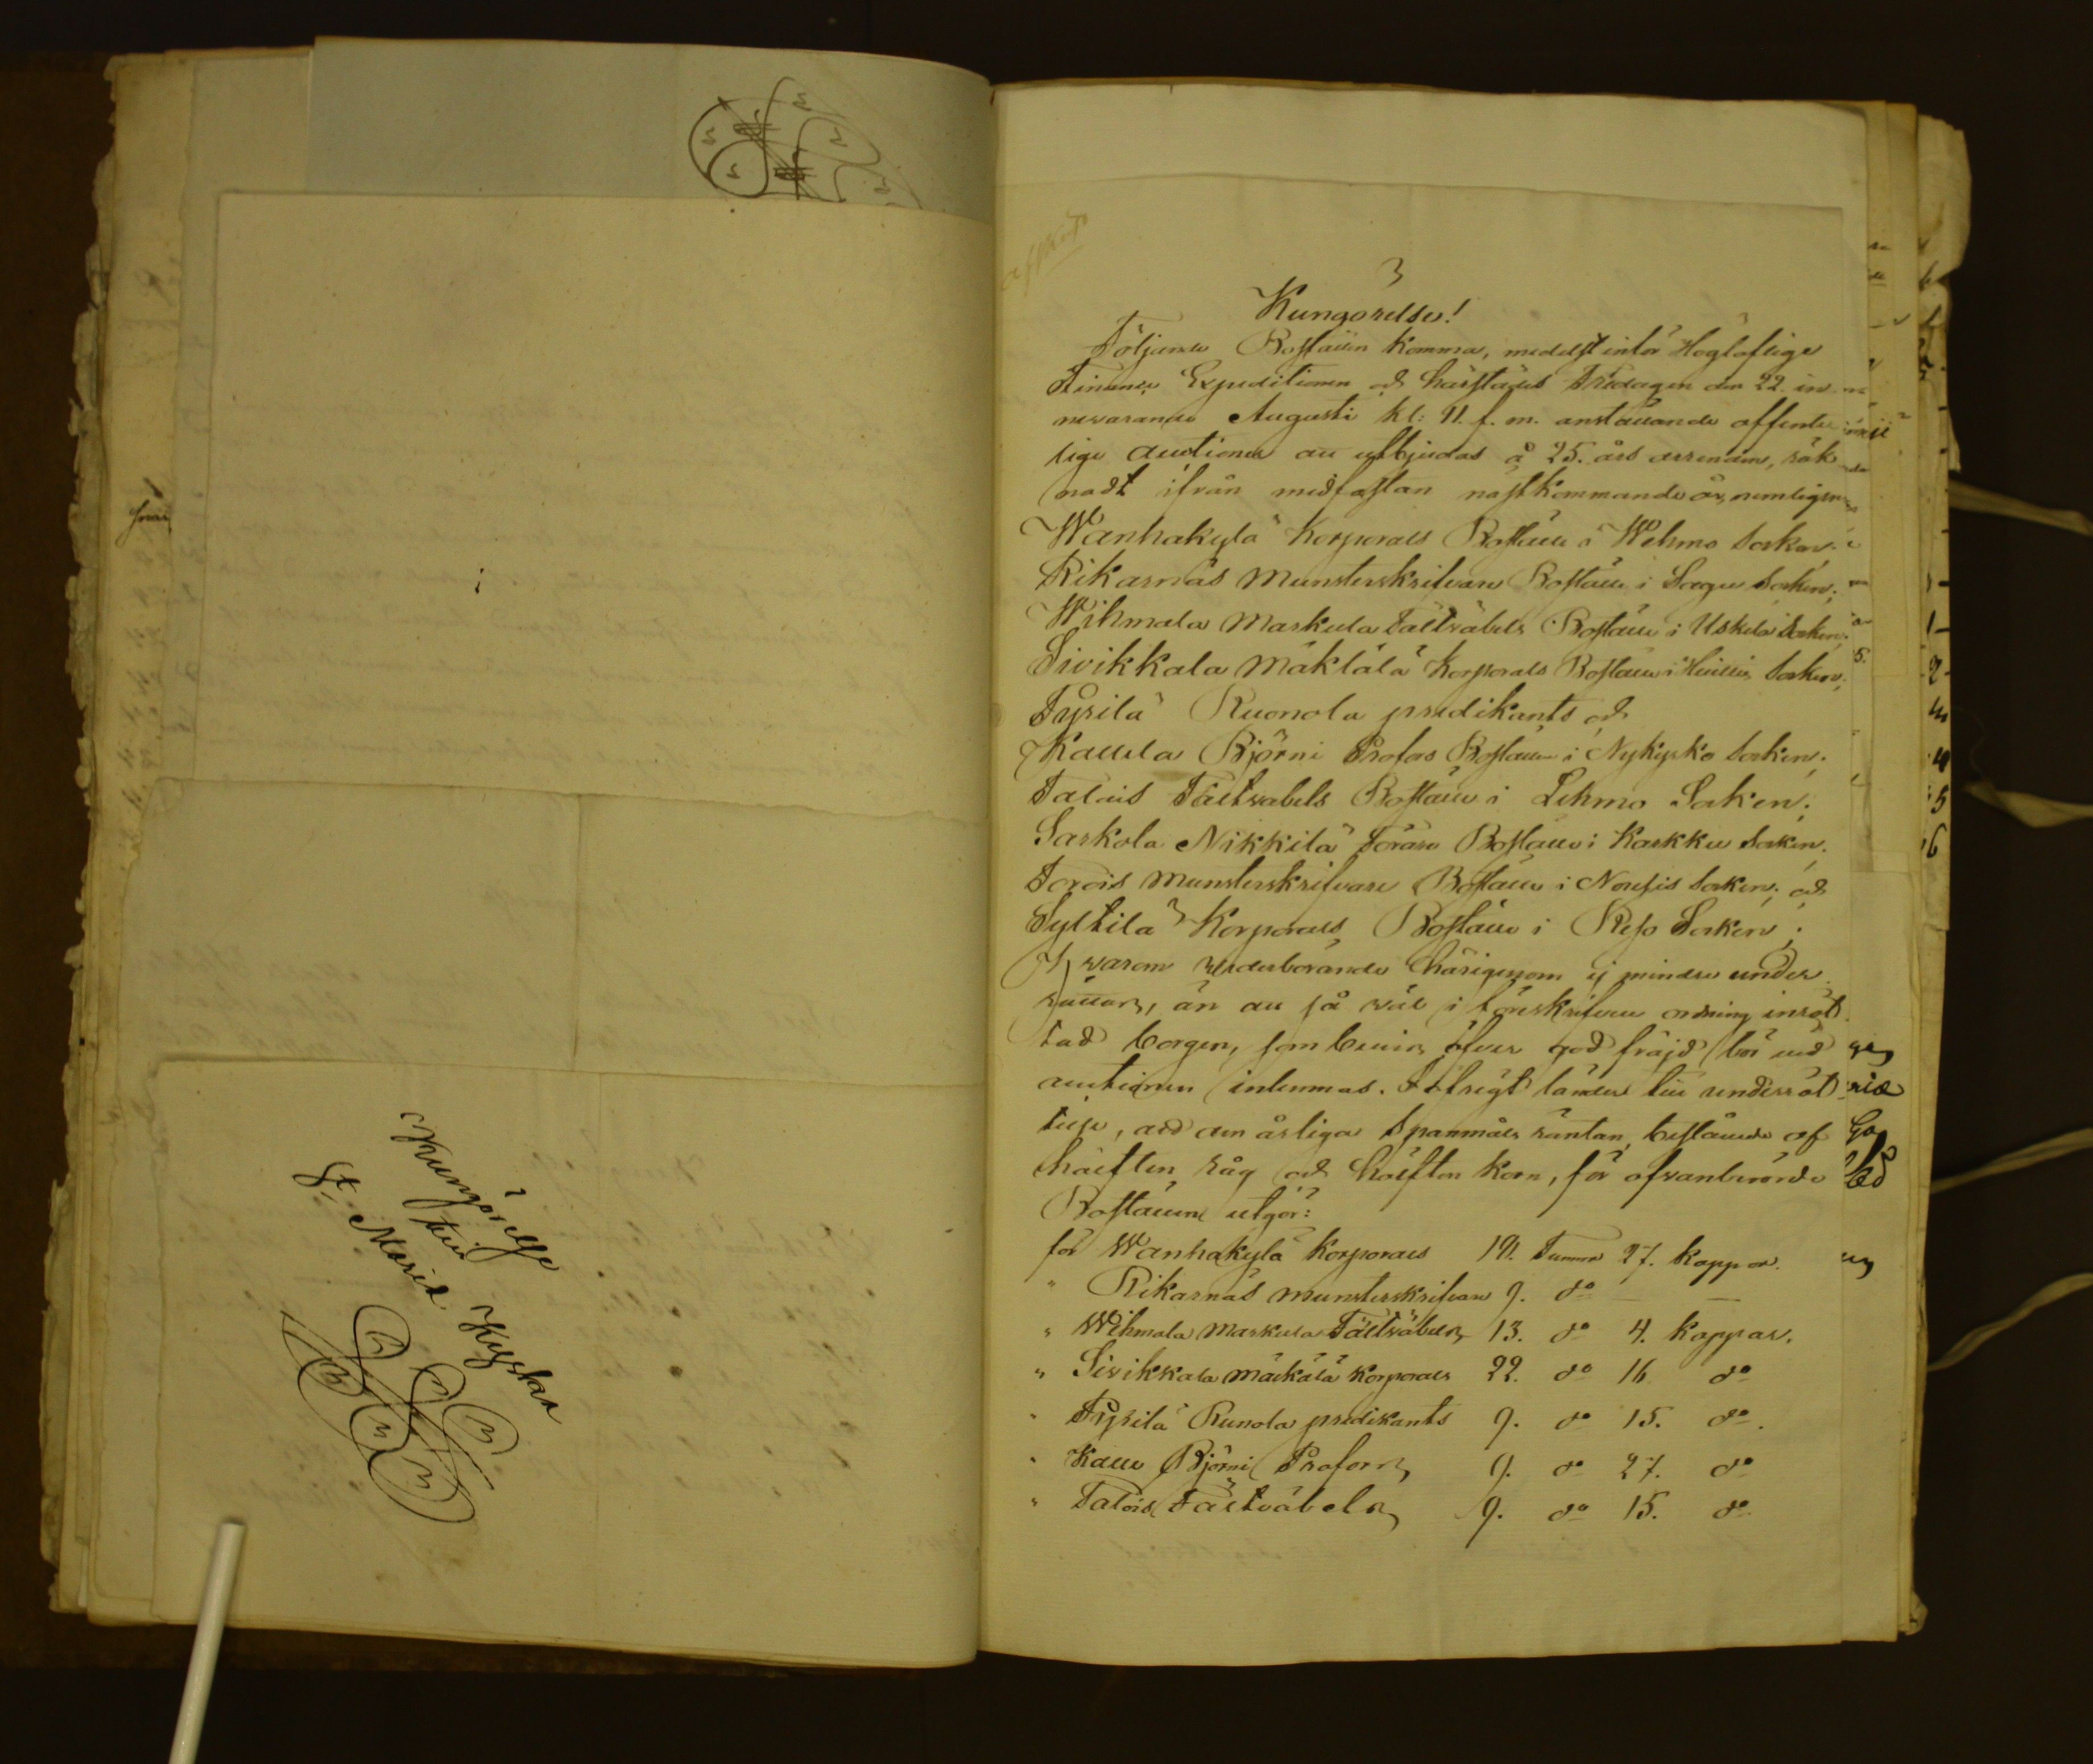 Kungörelse
till
St Mariæ Kyrka
Kungörelse!
Följande Boställen komma, medelst inför Högloflige
Finance Expeditionen och härstädes Fredagen den 22 in
nevarande Augusti kl: 11. f. m. anstäuande offente
lige auctioner att utbjudas å 25. års arrenden, räk
nadt ifrån midfastan nästkommande år, nemligen
Wanhakylä Korporals Boställe i Wehmo Socken.
Rikarnäs Munsterskrifvare Boställe i Sagu Socken;
Wihmala Markula Fältväbels Boställe i Uskela Socken.
Sivikkala Mäkälä Korporals Boställe i Huittis Socken;
Pyrilä Ruonola predikants och
Kallela Björni Profoss Boställe i Nykyrko Socken.
Talois Fältväbels Boställe i Lehmo Socken;
Sarkola Nikkilä Förare Boställe i Karkku Socken.
Torois Munsterskrifvare Boställe i Nousis Socken; och
Syltilä Korporals Boställe i Reso Socken;
Hvarom vederbörande härigenom ej mindre under
rättas, än att så väl i föreskrifven ordning inrät
tad borgen, som bevis öfver god fräjd bör vid
auctionen inlemnas. I öfrigt länder till underrät
telse, att den årliga Spannmåls räntan, bestående af
hälften råg och hälften korn, för ofvanberörde
Boställen utgör:
för Wanhakylä Korporals 19. Tunnor 27. kappar.
" Rikarnäs munsterskrifvare 9. do — —
" Wihmala Markula Fältväbels 13. do 4. kappar.
" Sivikkala Mäkälä Korporals 22. do 16 do
" Pyrilä Runola predikants 9. do 15. do.
" Kalle Björni Profoss 9. do 27. do
" Talois Fältväbels 9. do 15. do